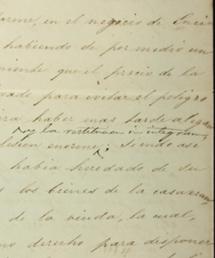 en el negocio de
habiendo de por medio un
niente que el precio de la
para evitar el peligro
ra haber mas tarde
hay la restitucion in integrum
lesion enorme; Siendo asi
habia heredado de su
los bienes de la casa
de la venta, la cual,
no derecho para disponer